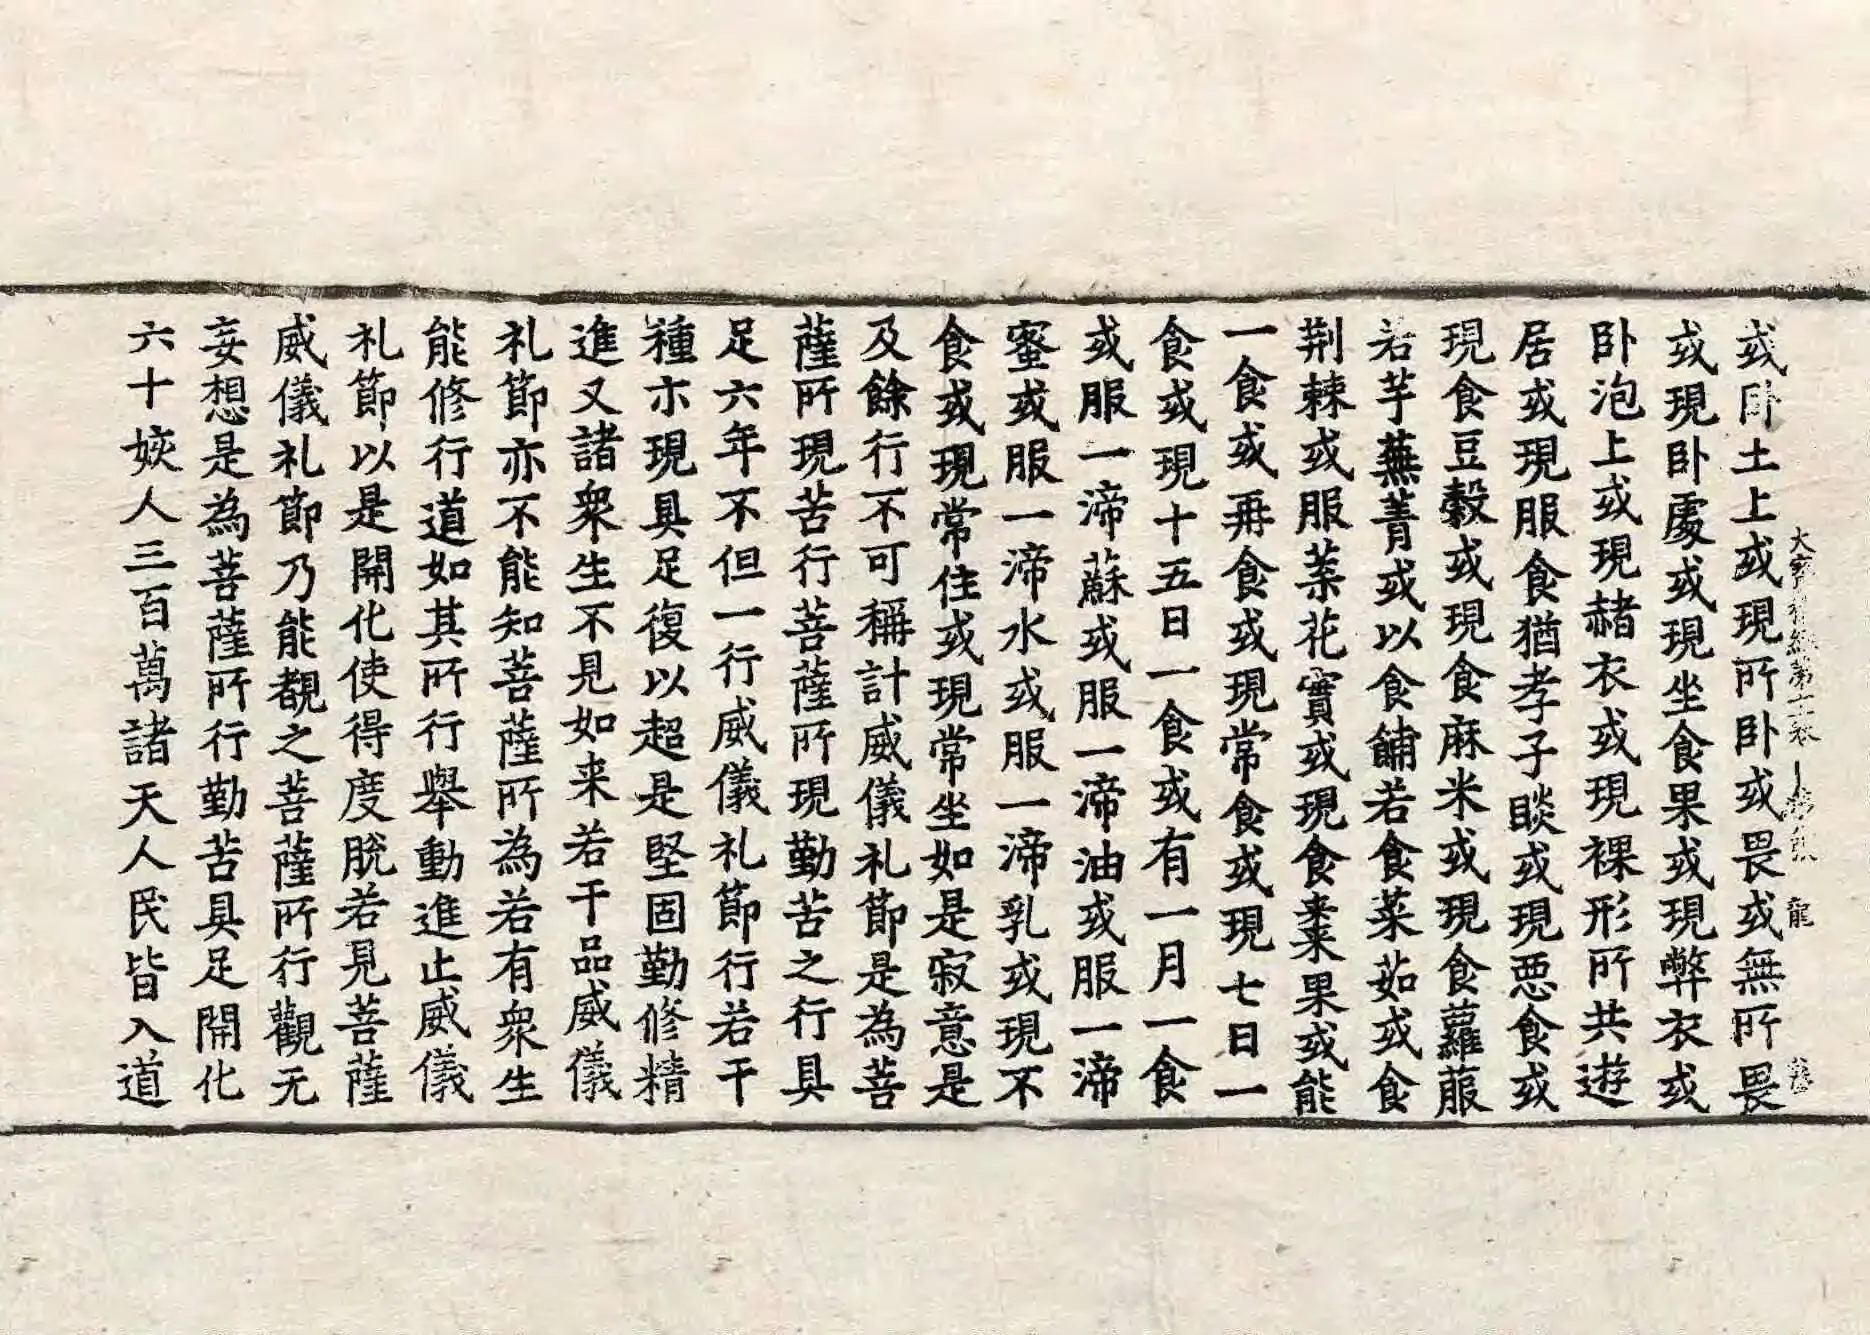 或卧土上或現所卧或畏或無所畏
或現卧處或現坐食果或現弊衣或
卧泡上或現赭衣或現裸形所共遊
居或現服食猶孝子睒或現惡食或
現食豆穀或現食麻米或現食蘿蔔
若芋蕪菁或以食餔若食菜茹或食
荆棘或服葉花實或現食棗果或能
一食或再食或現常食或現七日一
食或現十五日一食或有一月一食
或服一渧蘇或服一渧油或服一渧
蜜或服一渧水或服一渧乳或現不
食或現常住或現常坐如是寂意是
及餘行不可稱計威儀礼節是為菩
薩所現苦行菩薩所現勤苦之行具
足六年不但一行威儀礼節行若干
種亦現具足復以超是堅固勤修精
進又諸衆生不見如来若干品威儀
礼節亦不能知菩薩所為若有衆生
能修行道如其所行舉動進止威儀
礼節以是開化使得度脫若見菩薩
威儀礼節乃能覩之菩薩所行觀无
妄想是為菩薩所行勤苦具足開化
六十姟人三百萬諸天人民皆入道